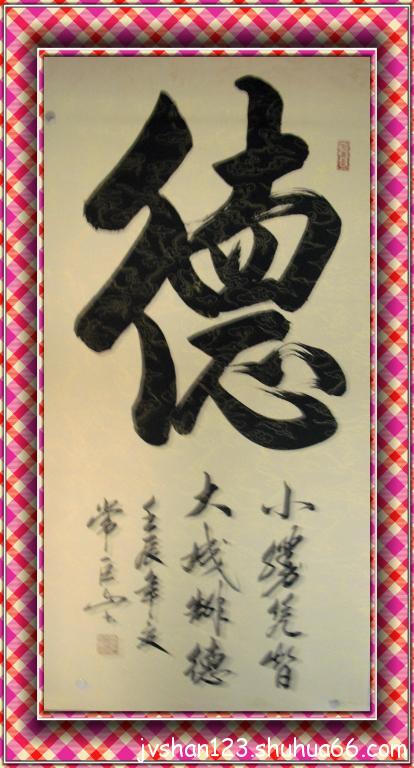 德
小勝凭智
大成靠德
壬辰年夏
常巨山
jvshan123.shuhua66.com